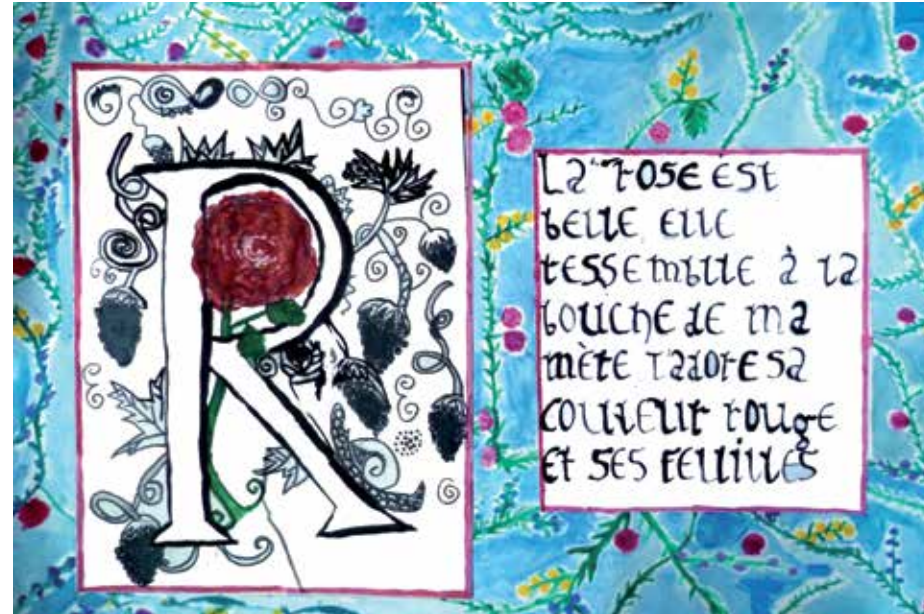 R
La rose est
belle elle
ressemble à la
bouche de ma
mère j'adore sa
couleur rouge
et ses feuilles